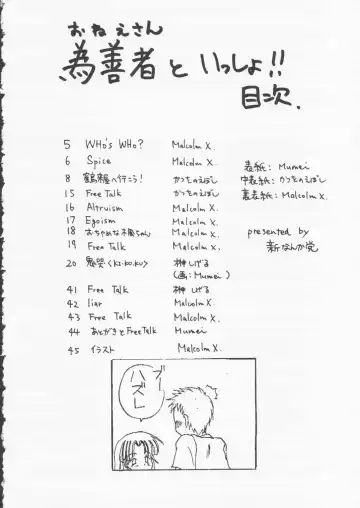 おねえさん
為善者といっしょ!!
目次.
5 WHO's WHo? Malcolm X.
6 Spice Malcolm X.
8 鶴屋へ行こう! かつをのえぼし
15 Free Talk かつをのえぼし
16 Altruism Malcolm X.
17 Egoism Malcolm X.
18 おちゃめな不風ちゃん Malcolm X.
19 Free Talk Malcolm X.
20 鬼哭〈KI・KO・KU〉 榊しげる
(画:Mumei)
41 Free Talk 榊しげる
42 liar Malcolm X.
43 Free Talk Malcolm X.
44 あとがきとFree Talk Mumei
45 イラスト Malcolm X.
表紙: Mumei
中表紙: かつをのえぼし
裏表紙: Malcolm X.
presented by
新なんか党
ブ
ハズレ